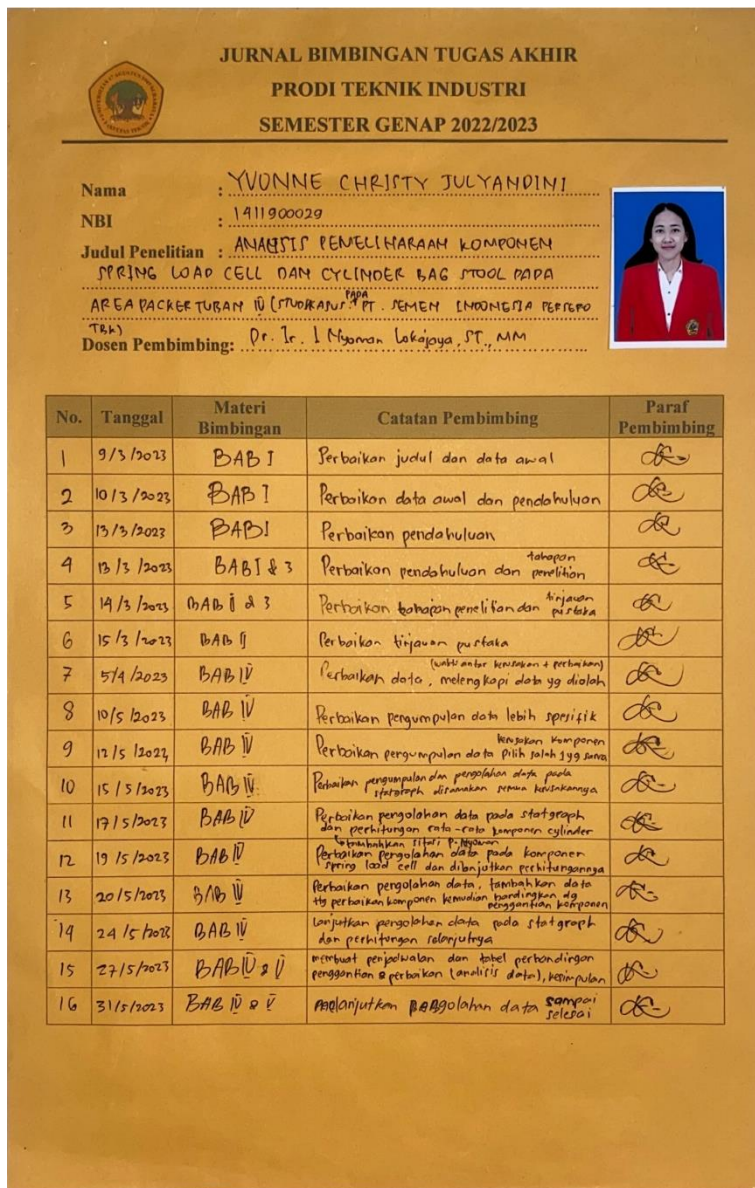 JURNAL BIMBINGAN TUGAS AKHIR
PRODI TEKNIK INDUSTRI
SEMESTER GENAP 2022/2023
Nama : YVONNE CHRISTY JULYANDINI
NBI : 1411900029
Judul Penelitian : ANALISIS PEMELIHARAAN KOMPONEN
SPRING LOAD CELL DAN CYLINDER BAG STOOL PADA
AREA PACKER TUBAN IV (STUDI KASUS : PADA PT. SEMEN INDONESIA PERSERO
TBK)
Dosen Pembimbing: Dr. Ir. I Nyoman Lokajaya, ST., MM
No. Tanggal Materi Bimbingan Catatan Pembimbing Paraf Pembimbing
1 9/3/2023 BAB I Perbaikan judul dan data awal
2 10/3/2023 BAB I Perbaikan data awal dan pendahuluan
3 13/3/2023 BAB I Perbaikan pendahuluan
4 13/3/2023 BAB I & 3 Perbaikan pendahuluan dan tahapan penelitian
5 14/3/2023 BAB II & 3 Perbaikan tahapan penelitian dan tinjauan pustaka
6 15/3/2023 BAB II Perbaikan tinjauan pustaka
7 5/4/2023 BAB IV Perbaikan data, melengkapi data yg diolah (waktu antar kerusakan + perbaikan)
8 10/5/2023 BAB IV Perbaikan pengumpulan data lebih spesifik
9 12/5/2023 BAB IV Perbaikan pengumpulan data pilih salah 1 yg sama kerusakan komponen
10 15/5/2023 BAB IV Perbaikan pengumpulan dan pengolahan data pada
statgraph disamakan semua kerusakannya
11 17/5/2023 BAB IV Perbaikan pengolahan data pada statgraph
dan perhitungan rata-rata komponen cylinder
tambahkan sitasi P. Nyoman
12 19/5/2023 BAB IV Perbaikan pengolahan data pada komponen
spring load cell dan dilanjutkan perhitungannya
13 20/5/2023 BAB IV Perbaikan pengolahan data, tambahkan data
ttg perbaikan komponen kemudian bandingkan dg
penggantian komponen
14 24/5/2023 BAB IV Lanjutkan pengolahan data pada statgraph
dan perhitungan selanjutnya
15 27/5/2023 BAB IV & V membuat penjadwalan dan tabel perbandingan
penggantian & perbaikan (analisis data), kesimpulan
16 31/5/2023 BAB IV & V Melanjutkan pengolahan data sampai selesai